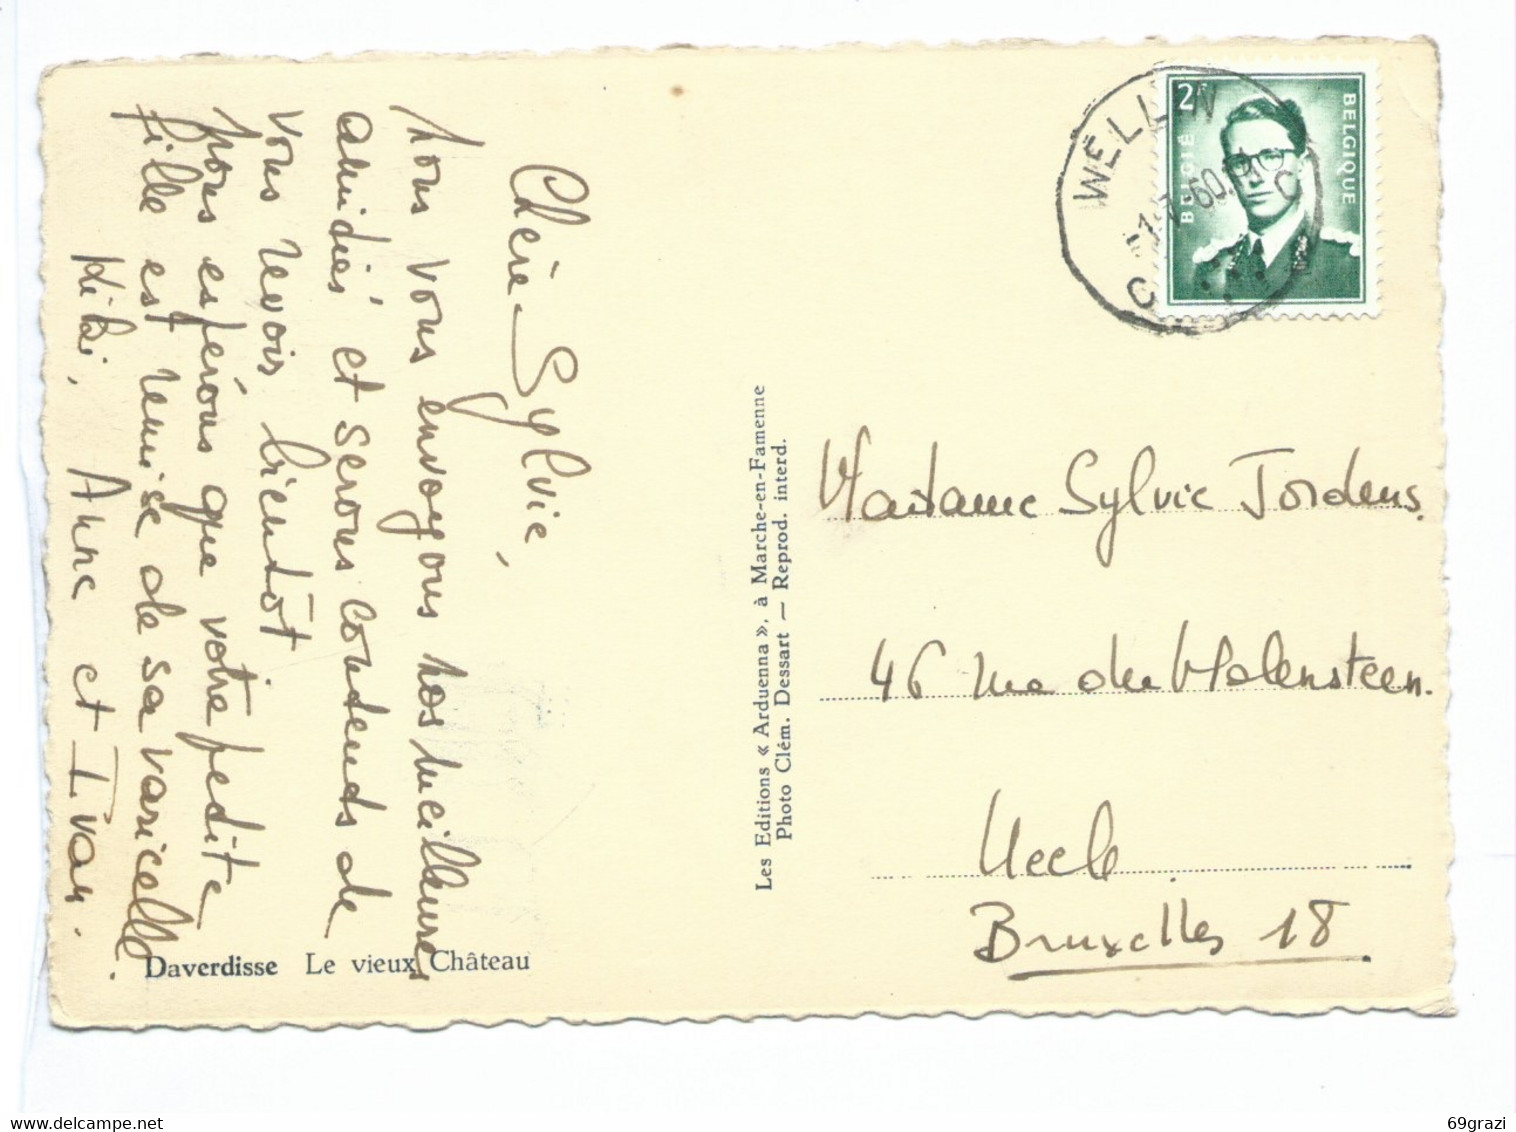 Chère Sylvie,
Nous vous envoyons nos meilleures
amitiés et serons contents de
vous revoir bientôt
Nous espérons que votre petite
fille est remise de sa varicelle.
Kiki, Anne et Ivan.
Daverdisse Le vieux Château
Les Editions « Arduenna », à Marche-en-Famenne
Photo Clém. Dessart — Reprod. interd.
2F
BELGIË
BELGIQUE
WELLIN
60
Madame Sylvie Jordens.
46 rue du Molensteen.
Uccle.
Bruxelles 18.
69grazi